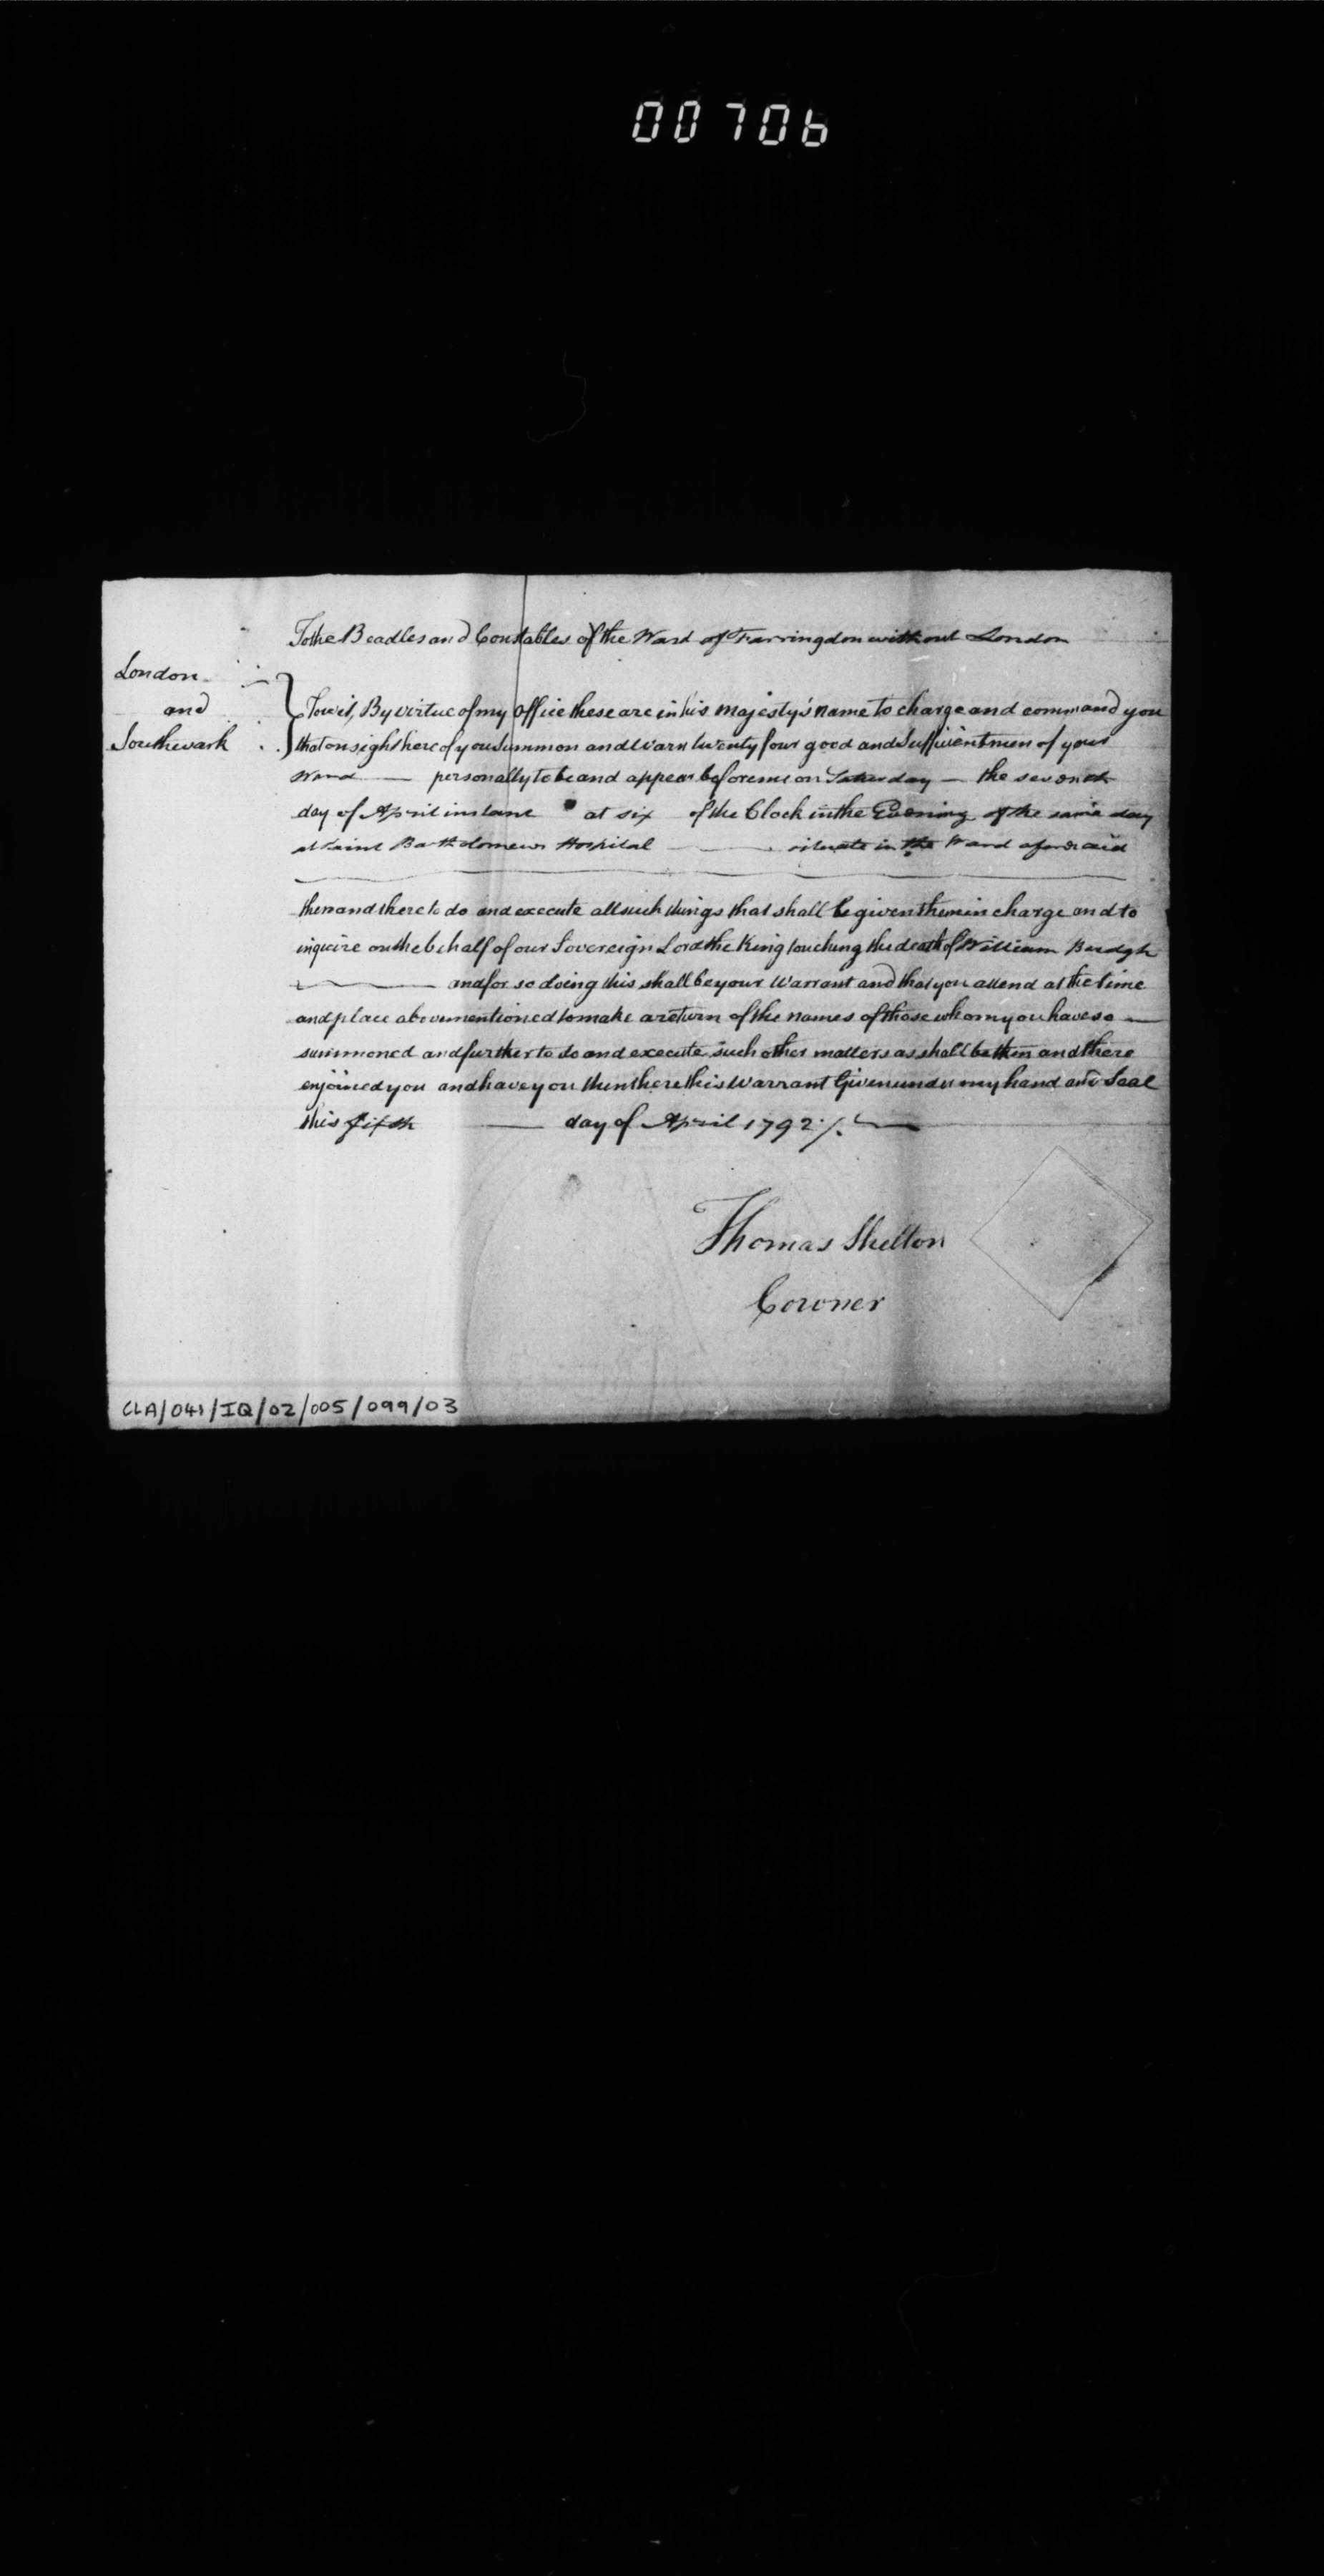 00706
To the Beadles and Constables of the Ward of Farringdon without London
London
and
Southwark
Towit, By virtue of my Office these are in his majesty's name to charge and command you
that on sight hereof you Summon and Warn twenty four good and Sufficient men of your
Ward personally to be and appear before me on Saturday the seventh
day of April instant at six of the Clock in the Evening of the same day
at Saint Bartholomews Hospital situate in the Ward aforesaid
then and there to do and execute all such things that shall be given them in charge and to
inquire on the behalf of our Sovereign Lord the King touching the death of William
and for so doing this shall be your Warrant and that you attend at the time
and place abovementioned to make a return of the names of those whom you have so
summoned and further to do and execute such other matters as shall be then and there
enjoined you and have you then there this Warrant Given under my hand and Seal
this fifth day of April 1792
Thomas Shelton
Coroner
CLA/041/IQ/02/005/099/03